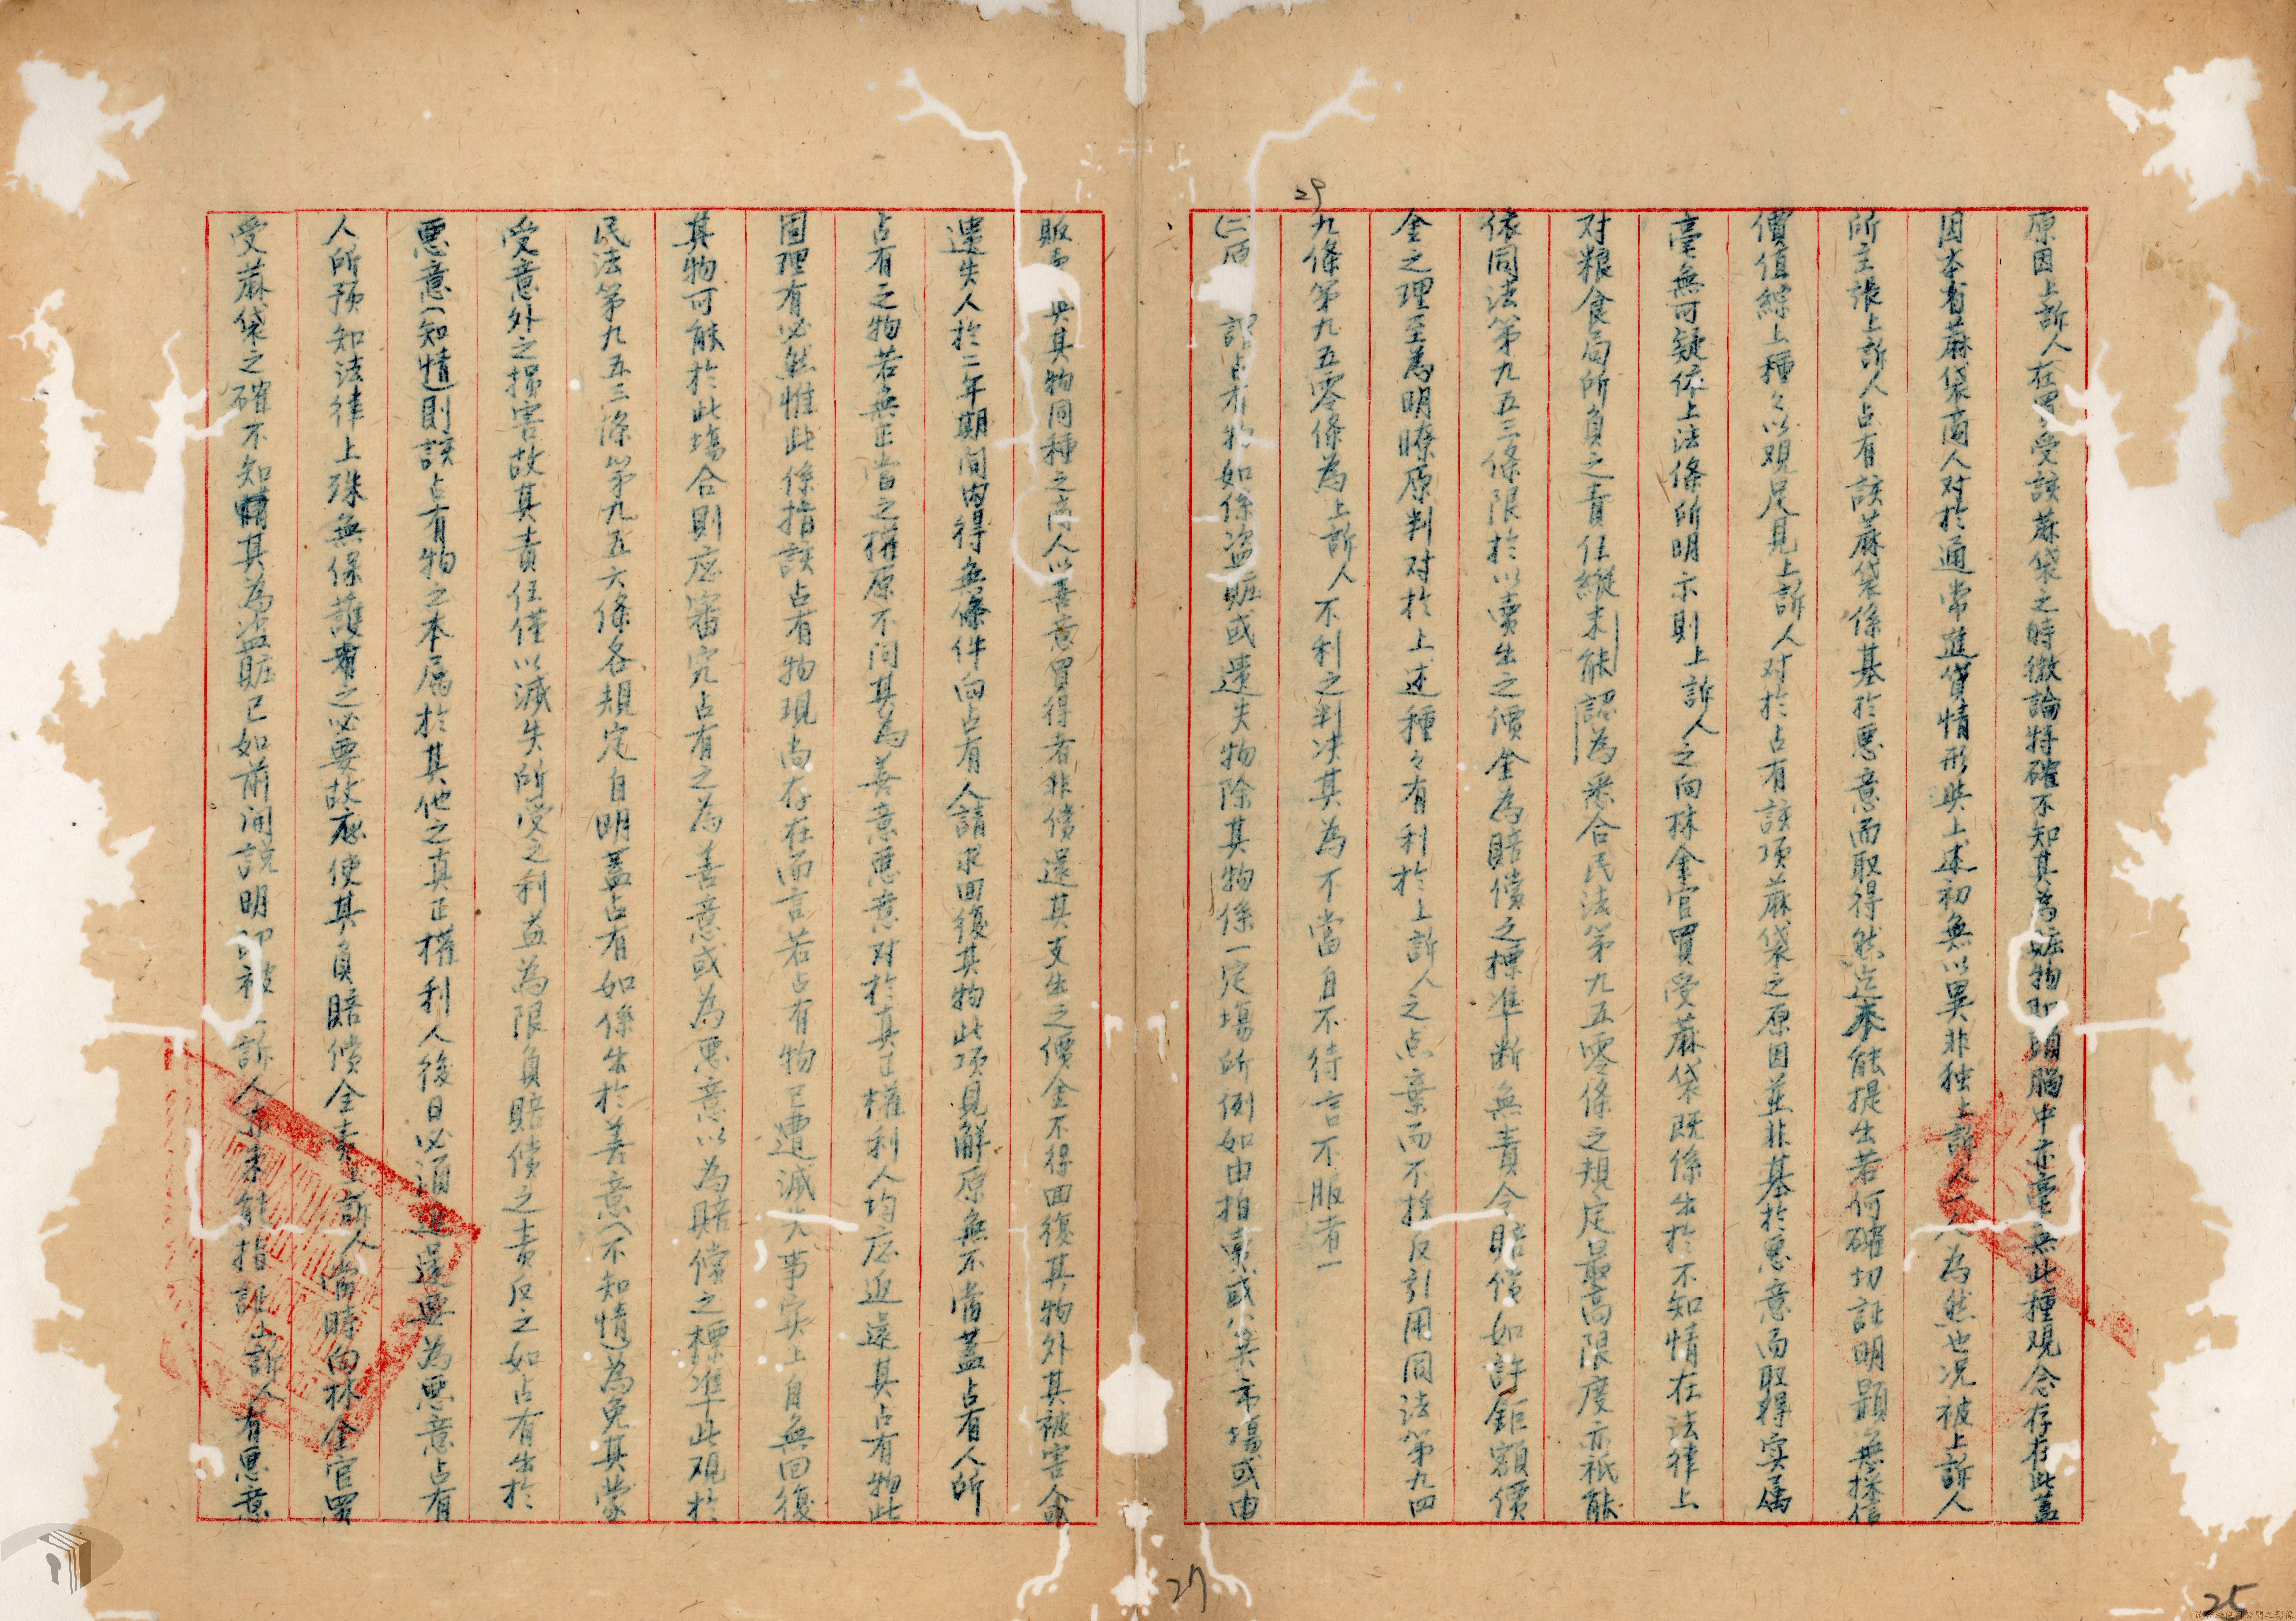 原因上訴人在買受該蔴袋之時徹論將確不知其為贓物即頭腦中亦毫無此種观念存在此蓋
因本省蔴袋商人对於通常進貨情形與上述初無以異非独上訴人一人為然也况被上訴人
所主張上訴人占有該蔴袋係基於悪意而取得然迄未能提出若何確切証明顕無採信
價值綜上種々以观足見上訴人对於占有該項蔴袋之原因並非基於悪意而取得实属
毫無可疑依上法條所明示則上訴人之向林金官買受蔴袋既係出於不知情在法律上
对粮食局所負之責任縦未能認為悉合民法第九五零條之規定最高限度亦祇能
依同法第九五三條限於以賣出之價金為賠償之標準断無責令賠償如許鉅額價
金之理至為明瞭原判对於上述種々有利於上訴人之点棄而不採反引用同法第九四
29
九條第九五零條為上訴人不利之判决其為不當自不待言不服者一
(二)原 謂占有物如係盗贓或遺失物除其物係一定場所例如由拍賣或公業市場或由
販 與其物同種之商人以善意買得者非償還其支出之價金不得回復其物外其被害人或
遺失人於二年期間内得無條件向占有人請求回復其物此項見解原無不當蓋占有人所
占有之物若無正當之權原不问其為善意悪意对於真正權利人均应返還其占有物此
固理有必然惟此係指該占有物現尚存在而言若占有物已遭滅失事实上自無回復
其物可能於此場合則应審究占有之為善意或為悪意以為賠償之標準此观於
民法第九五三條第九五六條各規定自明蓋占有如係出於善意(不知情)為免其蒙
受意外之損害故其責任僅以滅失所受之利益為限負賠償之責反之如占有出於
悪意(知情)則該占有物之本属於其他之真正權利人後日必須返還要為悪意占有
人所預知法律上殊無保護之必要故应使其負賠償全責上訴人當時向林金官買
受蔴袋之確不知情其為盗贓已如前開説明即被 訴人亦未能指証上訴人有悪意
27
25